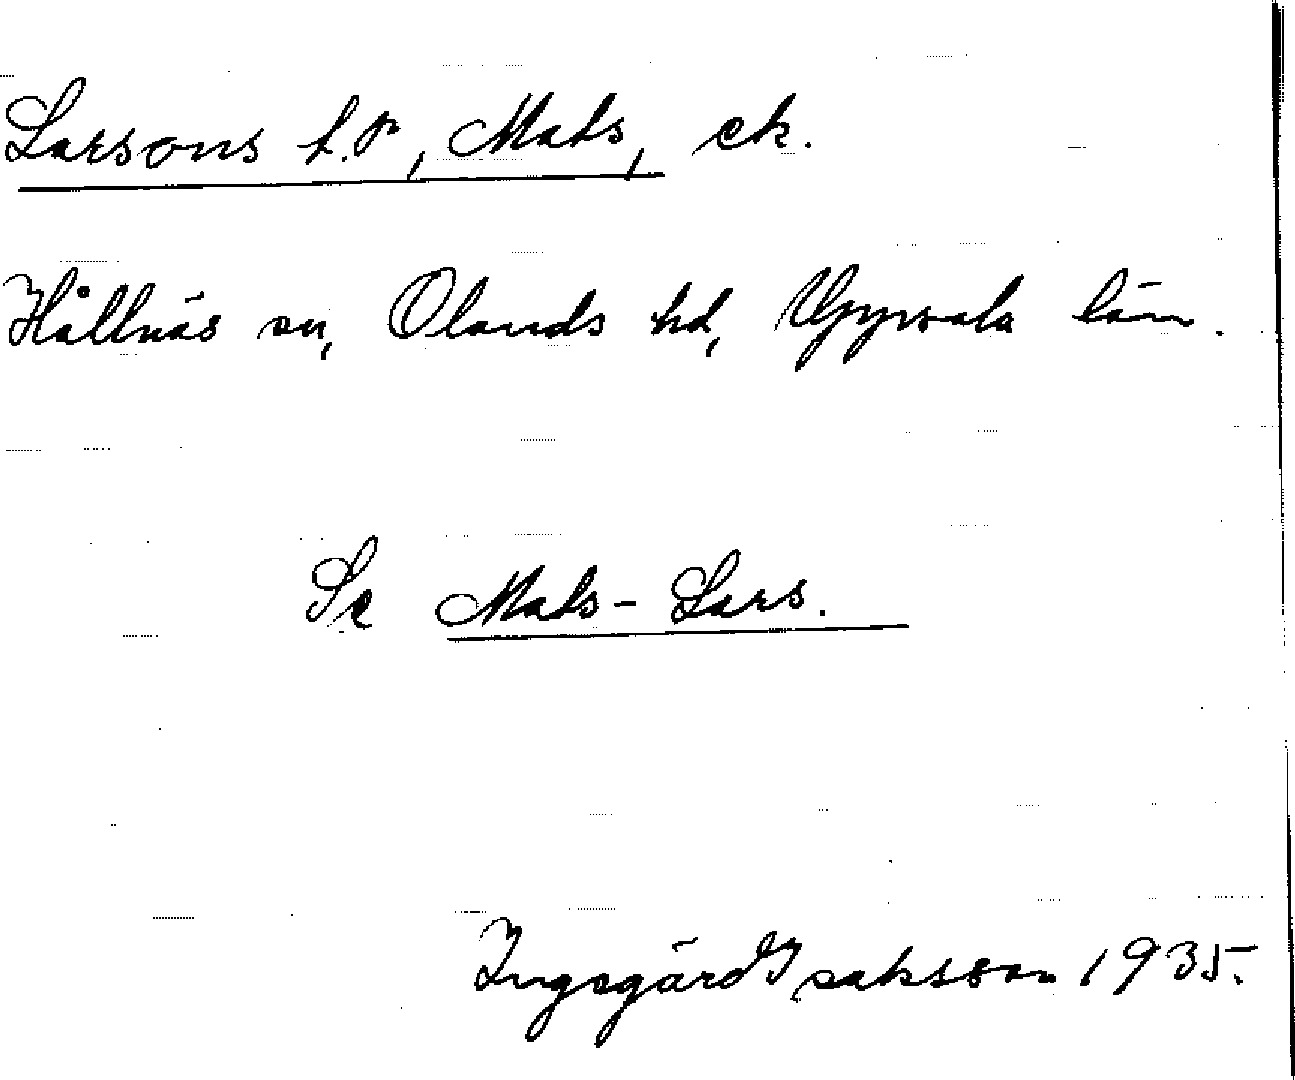 Larsons L.P, Mats, ek.
Hållnäs sn, Olands hd, Uppsala län.
Se Mats-Lars.
Ingegärd Isaksson 1935.